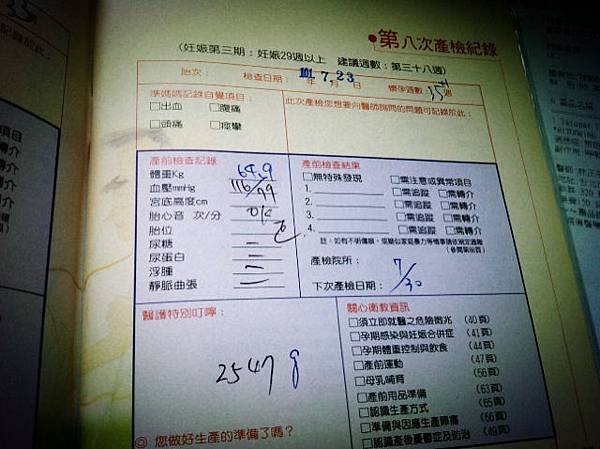 ●第八次產檢紀錄
(妊娠第三期:妊娠29週以上 建議週數:第三十八週)
胎次: 檢查日期:111年7月23日 懷孕週數:35+1週
準媽媽記錄自覺項目:
□出血 □腹痛
□頭痛 □痙攣
此次產檢您想要向醫師詢問的問題可記錄於此:
產前檢查記錄
體重Kg 64.9
血壓mmHg 116/79
宮底高度cm
胎心音 次/分 OK
胎位
尿糖 —
尿蛋白 —
浮腫 —
靜脈曲張 —
產前檢查結果
□無特殊發現 □需注意或異常項目
1. □需追蹤 □需轉介
2. □需追蹤 □需轉介
3. □需追蹤 □需轉介
4. □需追蹤 □需轉介
產檢院所:
下次產檢日期:7/30
醫護特別叮嚀:
2547 g
◎ 您做好生產的準備了嗎?
關心衛教資訊
□須立即就醫之危險徵兆 (40頁)
□孕期感染與妊娠合併症 (41頁)
□孕期體重控制與飲食 (44頁)
□產前運動 (47頁)
□母乳哺育 (56頁)
□產前用品準備 (63頁)
□認識生產方式 (65頁)
□準備與因應生產陣痛 (66頁)
□認識產後憂鬱症及防治 (49頁)